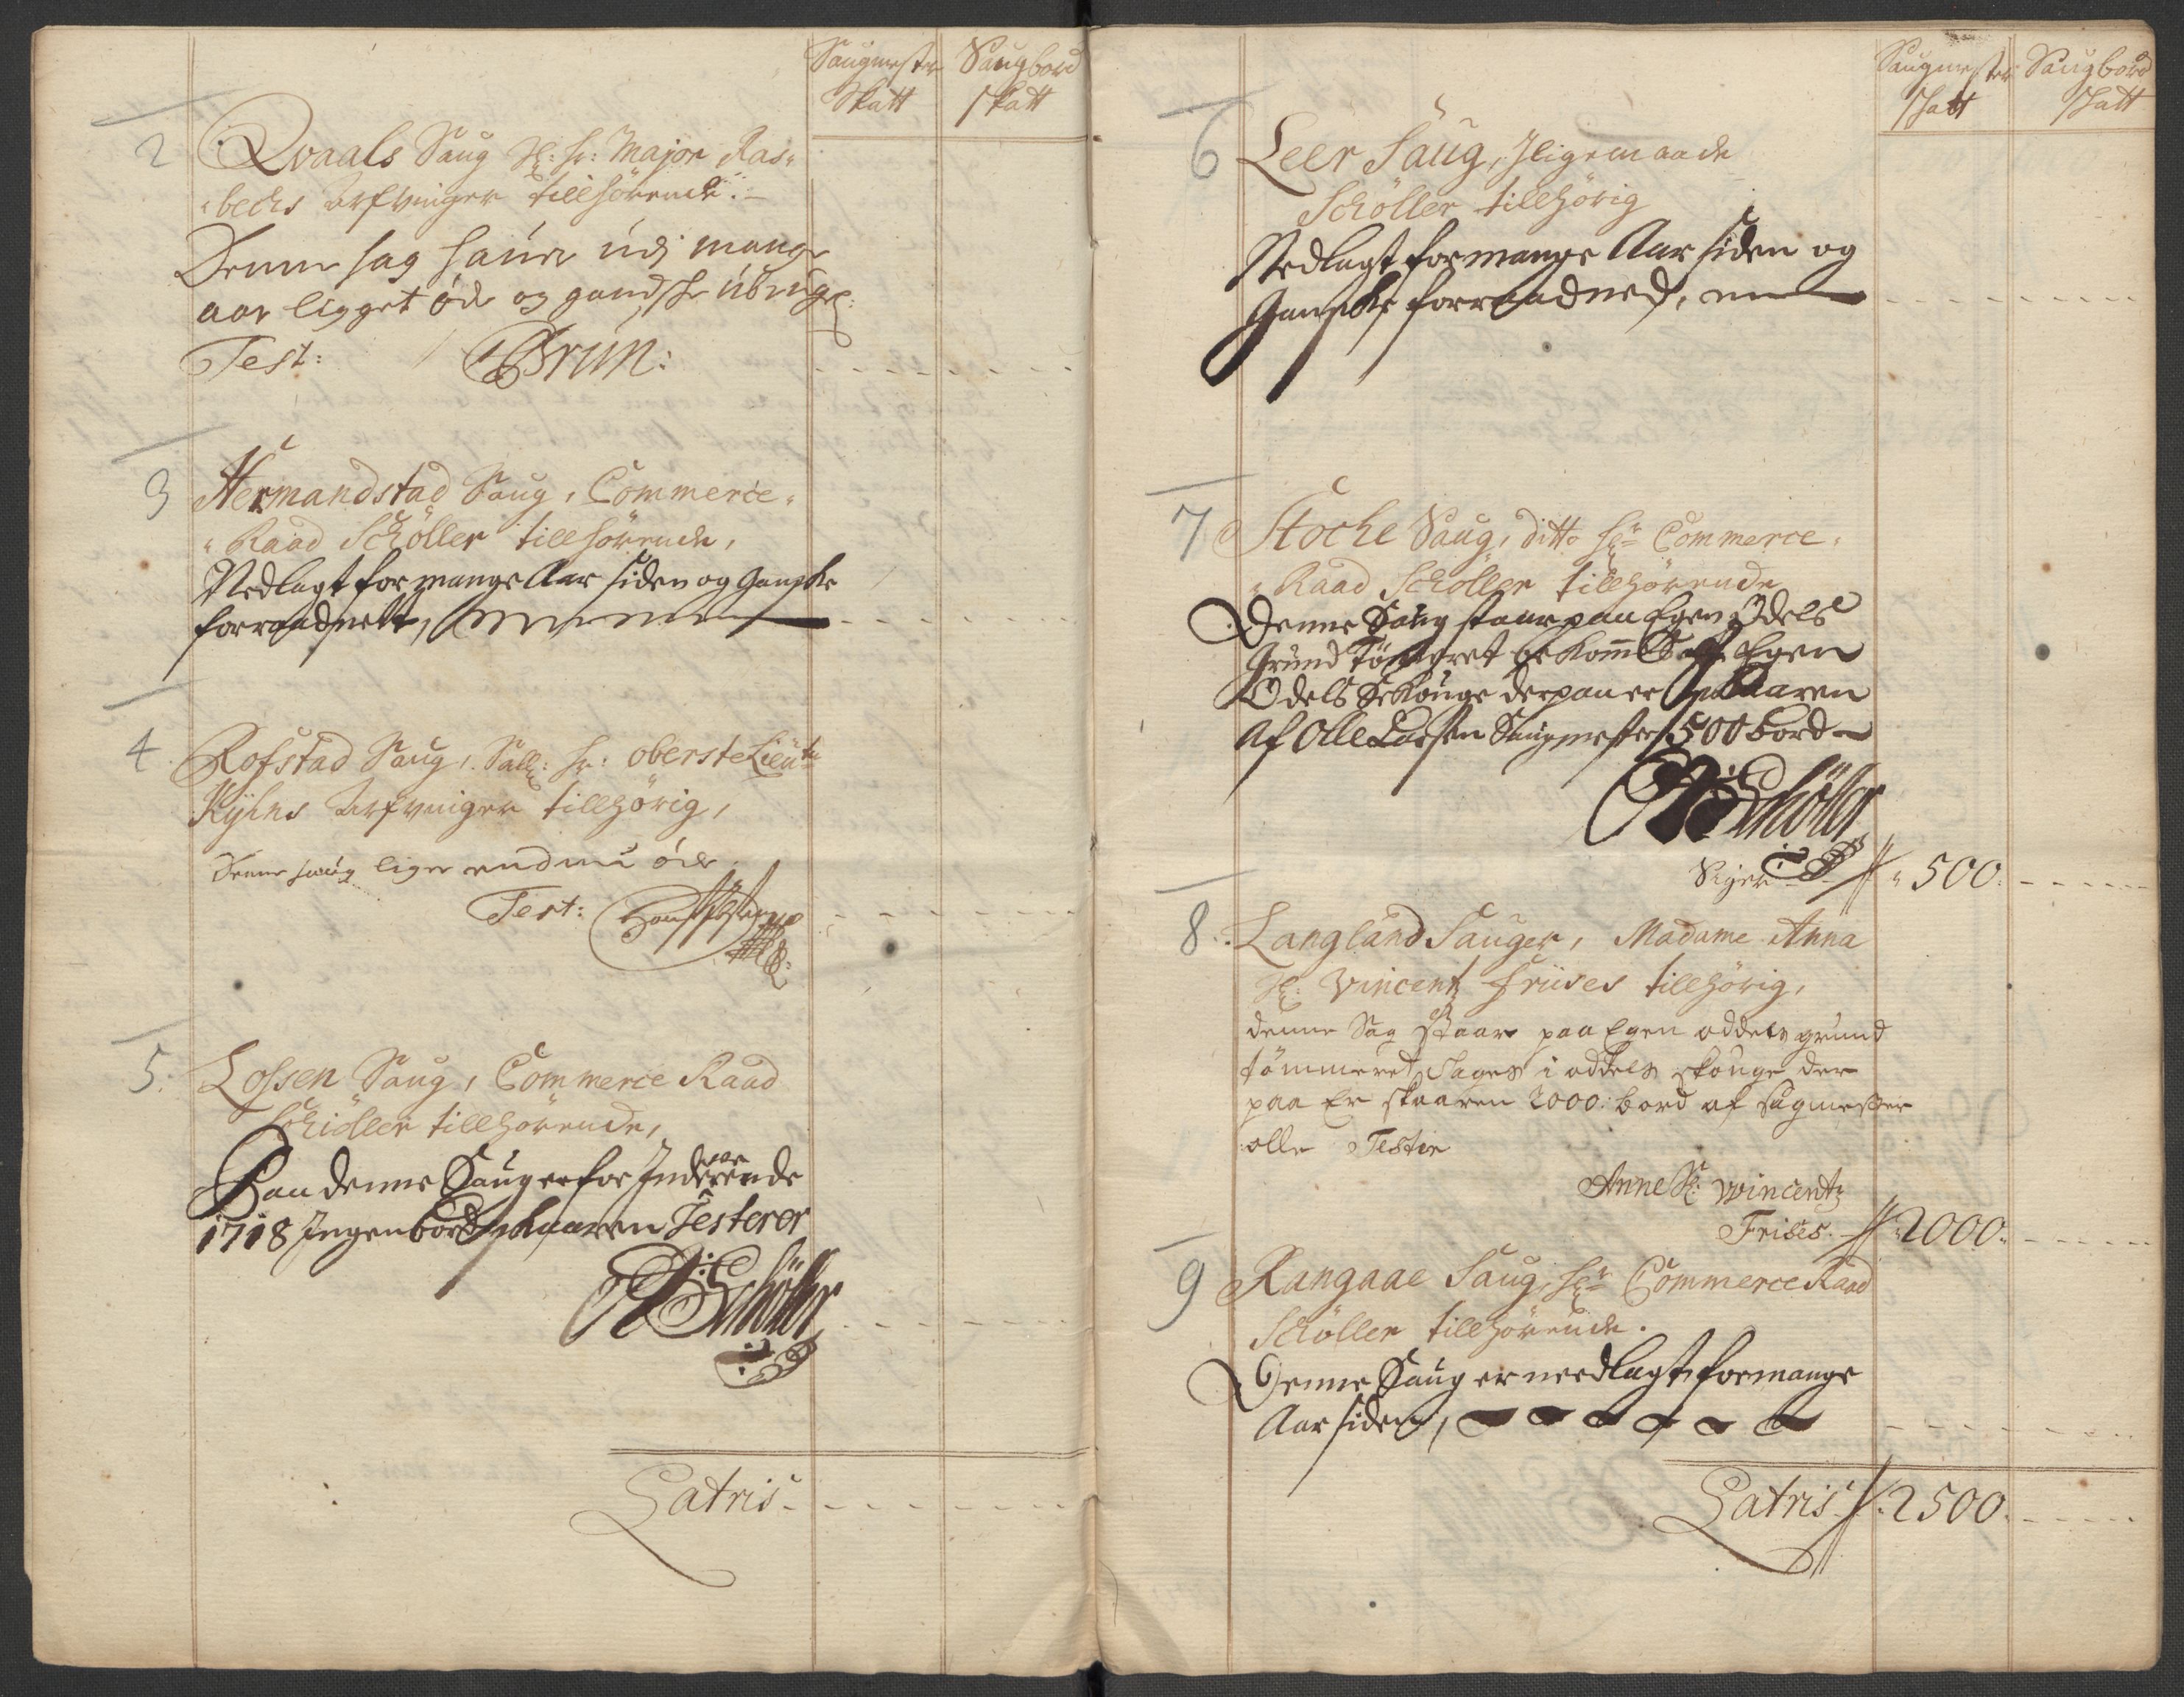 Saugmester Saugbord
Skatt Skatt
2 Qvaals Saug Sl: Hr: Major Ras-
becks Arfvinger tillhörende.
Denne sag haver udj mange
aar ligget öde og gandske übrugel:
Test: Brun:
3 Hermandstad Saug, Commerce-
Raad Schöller tillhörende,
Nedlagt for mange Aar siden og Ganske
forraadnett,
4 Rofstad Saug, Sall: Hr: oberste Lieut:
Kyhns Arfvinger tillhörig,
Denne saug liger endnu öde
Test:
5. Lossen Saug, Commerce Raad
Schöller tillhörende,
Paa denne Saug er for Inderværende
1718 Ingen bord skaaren Testerer
Schöller
Latris
Saugmester Saugbord
Skatt Skatt
6 Leer Saug, Iligemaade
Schöller tillhörig
Nedlagt for mange Aar siden og
Ganske forraadned,
7 Stoche Saug, ditto Hr Commerce-
Raad Schöller tillhörende
Denne Saug staar paa Egen Odels
Grund Tömmret bekommes af Egen
Odels Skouge derpaa er skaaren
Af Olle Larsen Saugmester 500 bord
Schöller
Siger 500.
8. Langland Sauger, Madame Anna
Sl: Vincentz Friises tillhörig,
denne Sag Staar paa Egen oddels grund
tömmeret Tages i oddels skouge der
paa Er skaaren 2000: bord af sagmester
olle Tester
Anne Sl: Vincentz
Frises. 2000.
9 Rangaae Saug, Hr Commerce Raad
Schöller tillhörende.
Denne Saug er needlagt for mange
Aar siden,
Latris 2500.